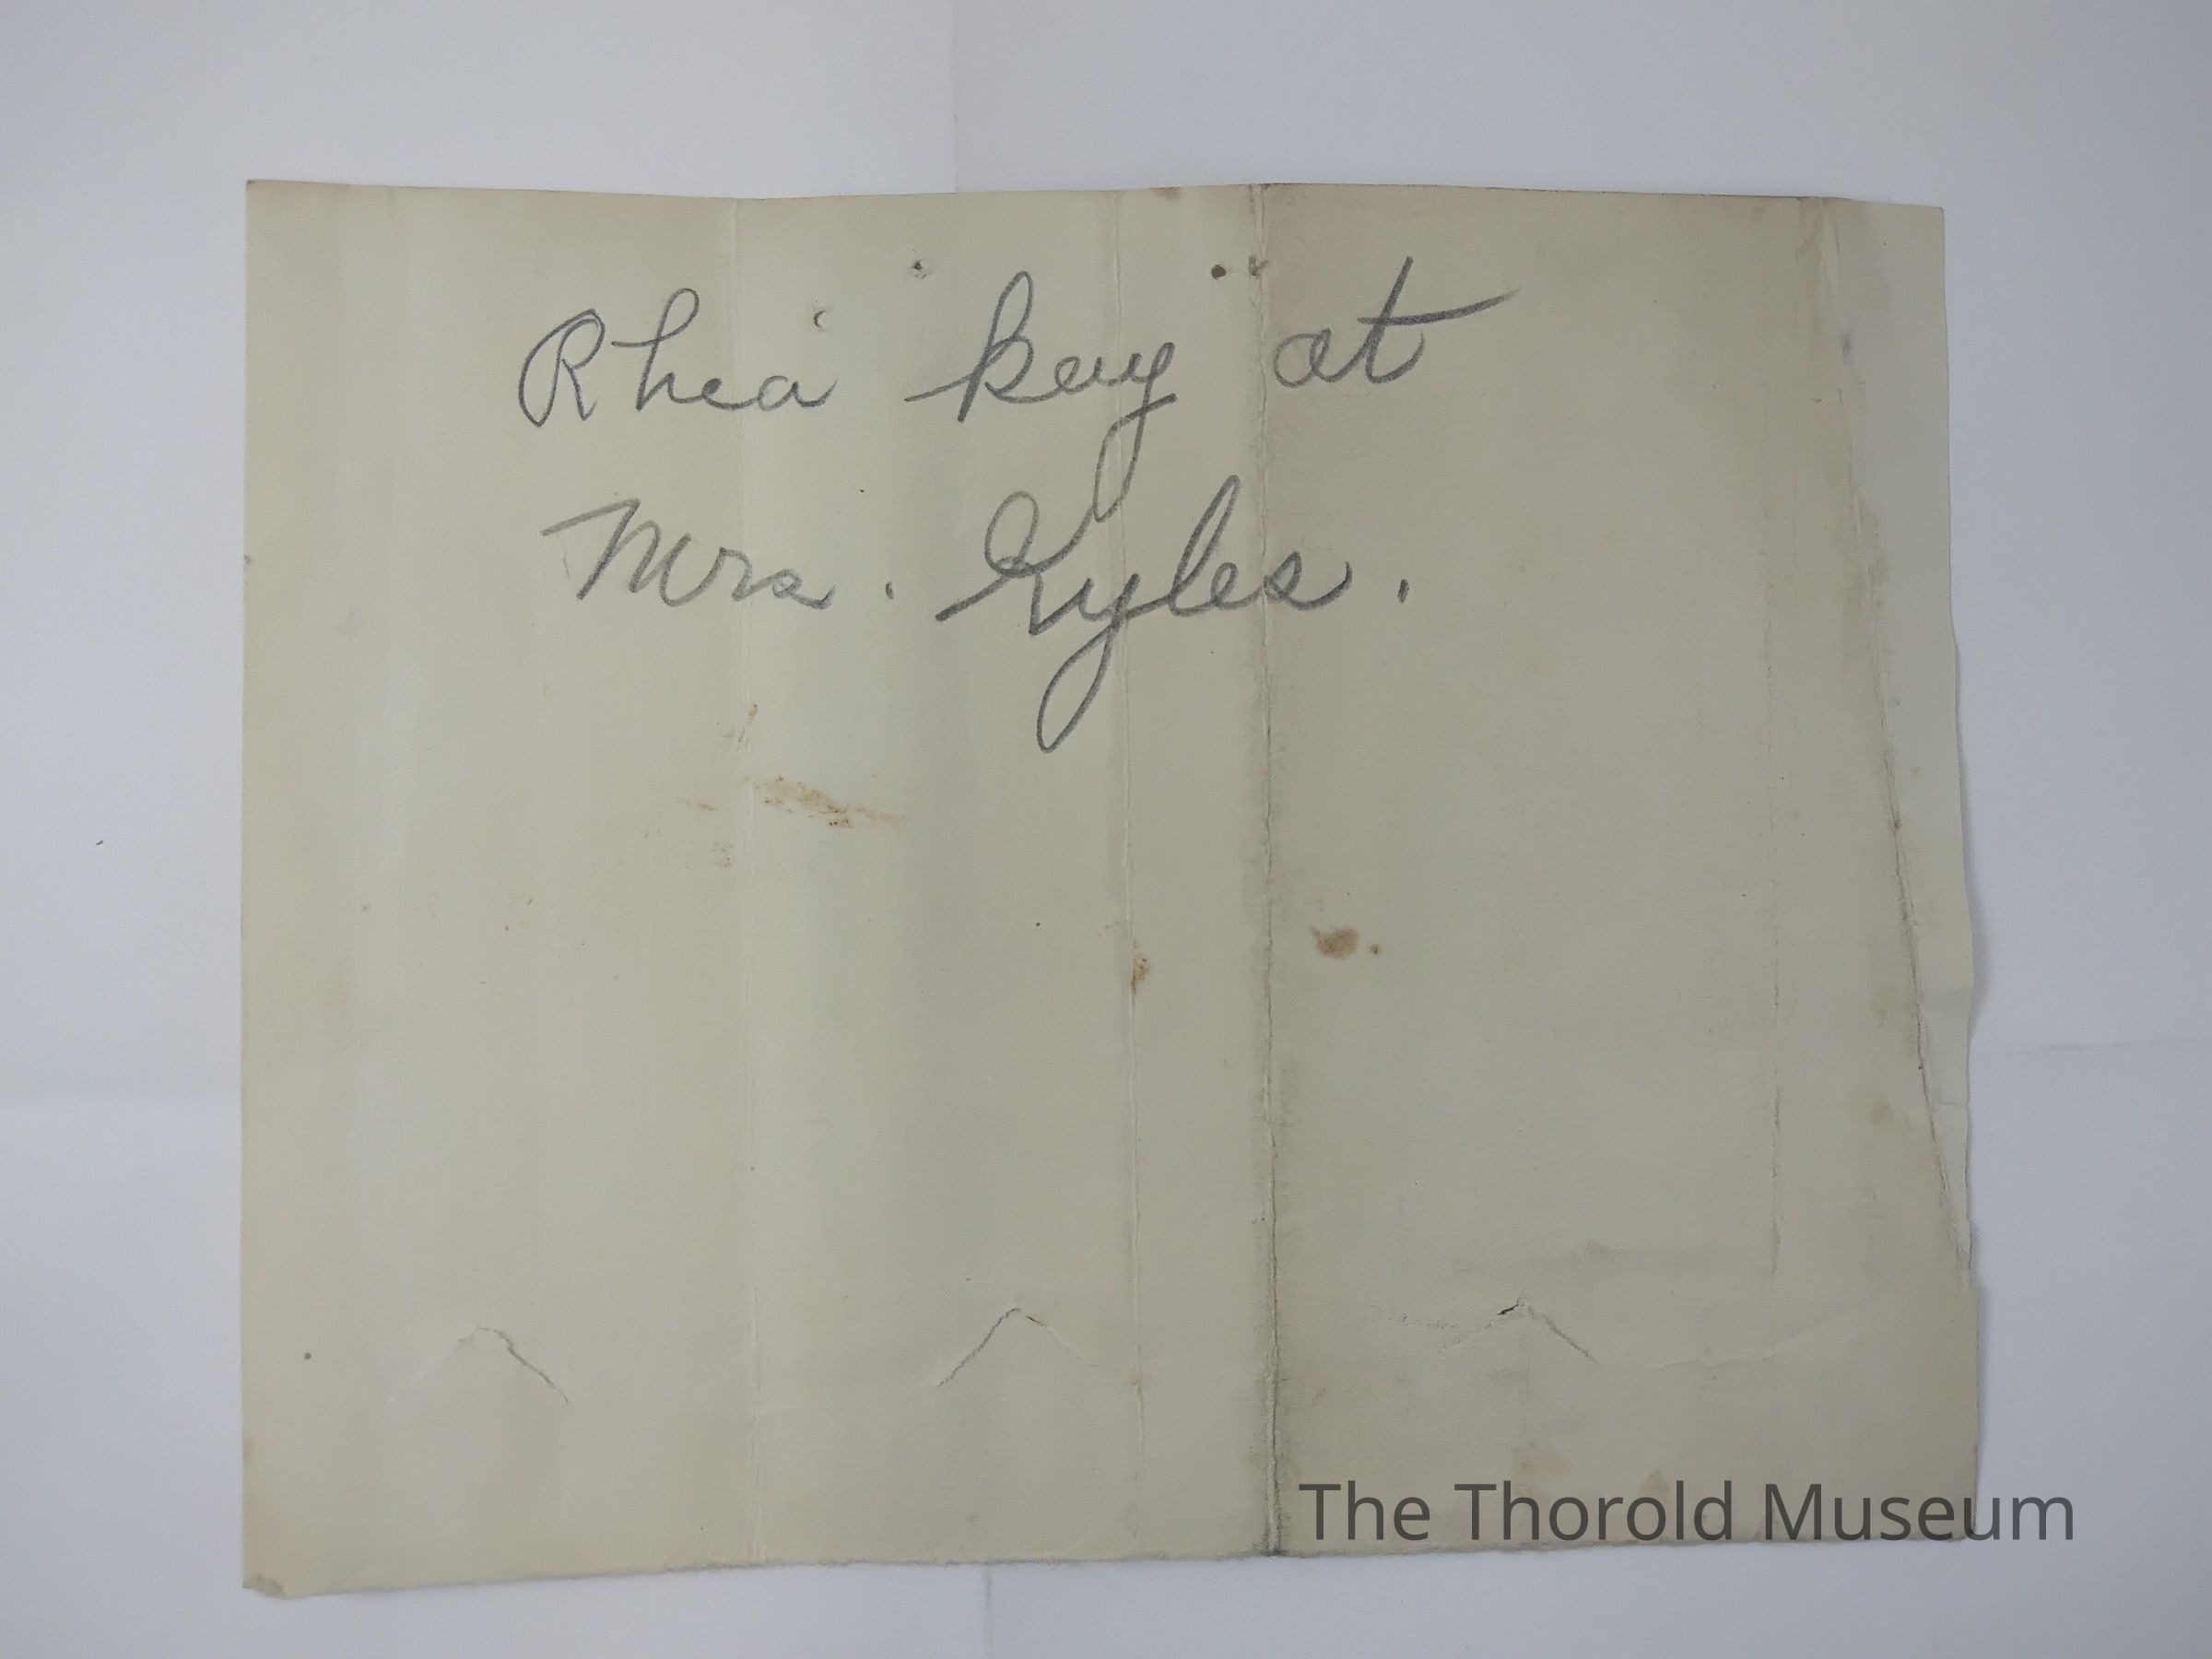 Rhea key at
Mrs. Gyles.
The Thorold Museum